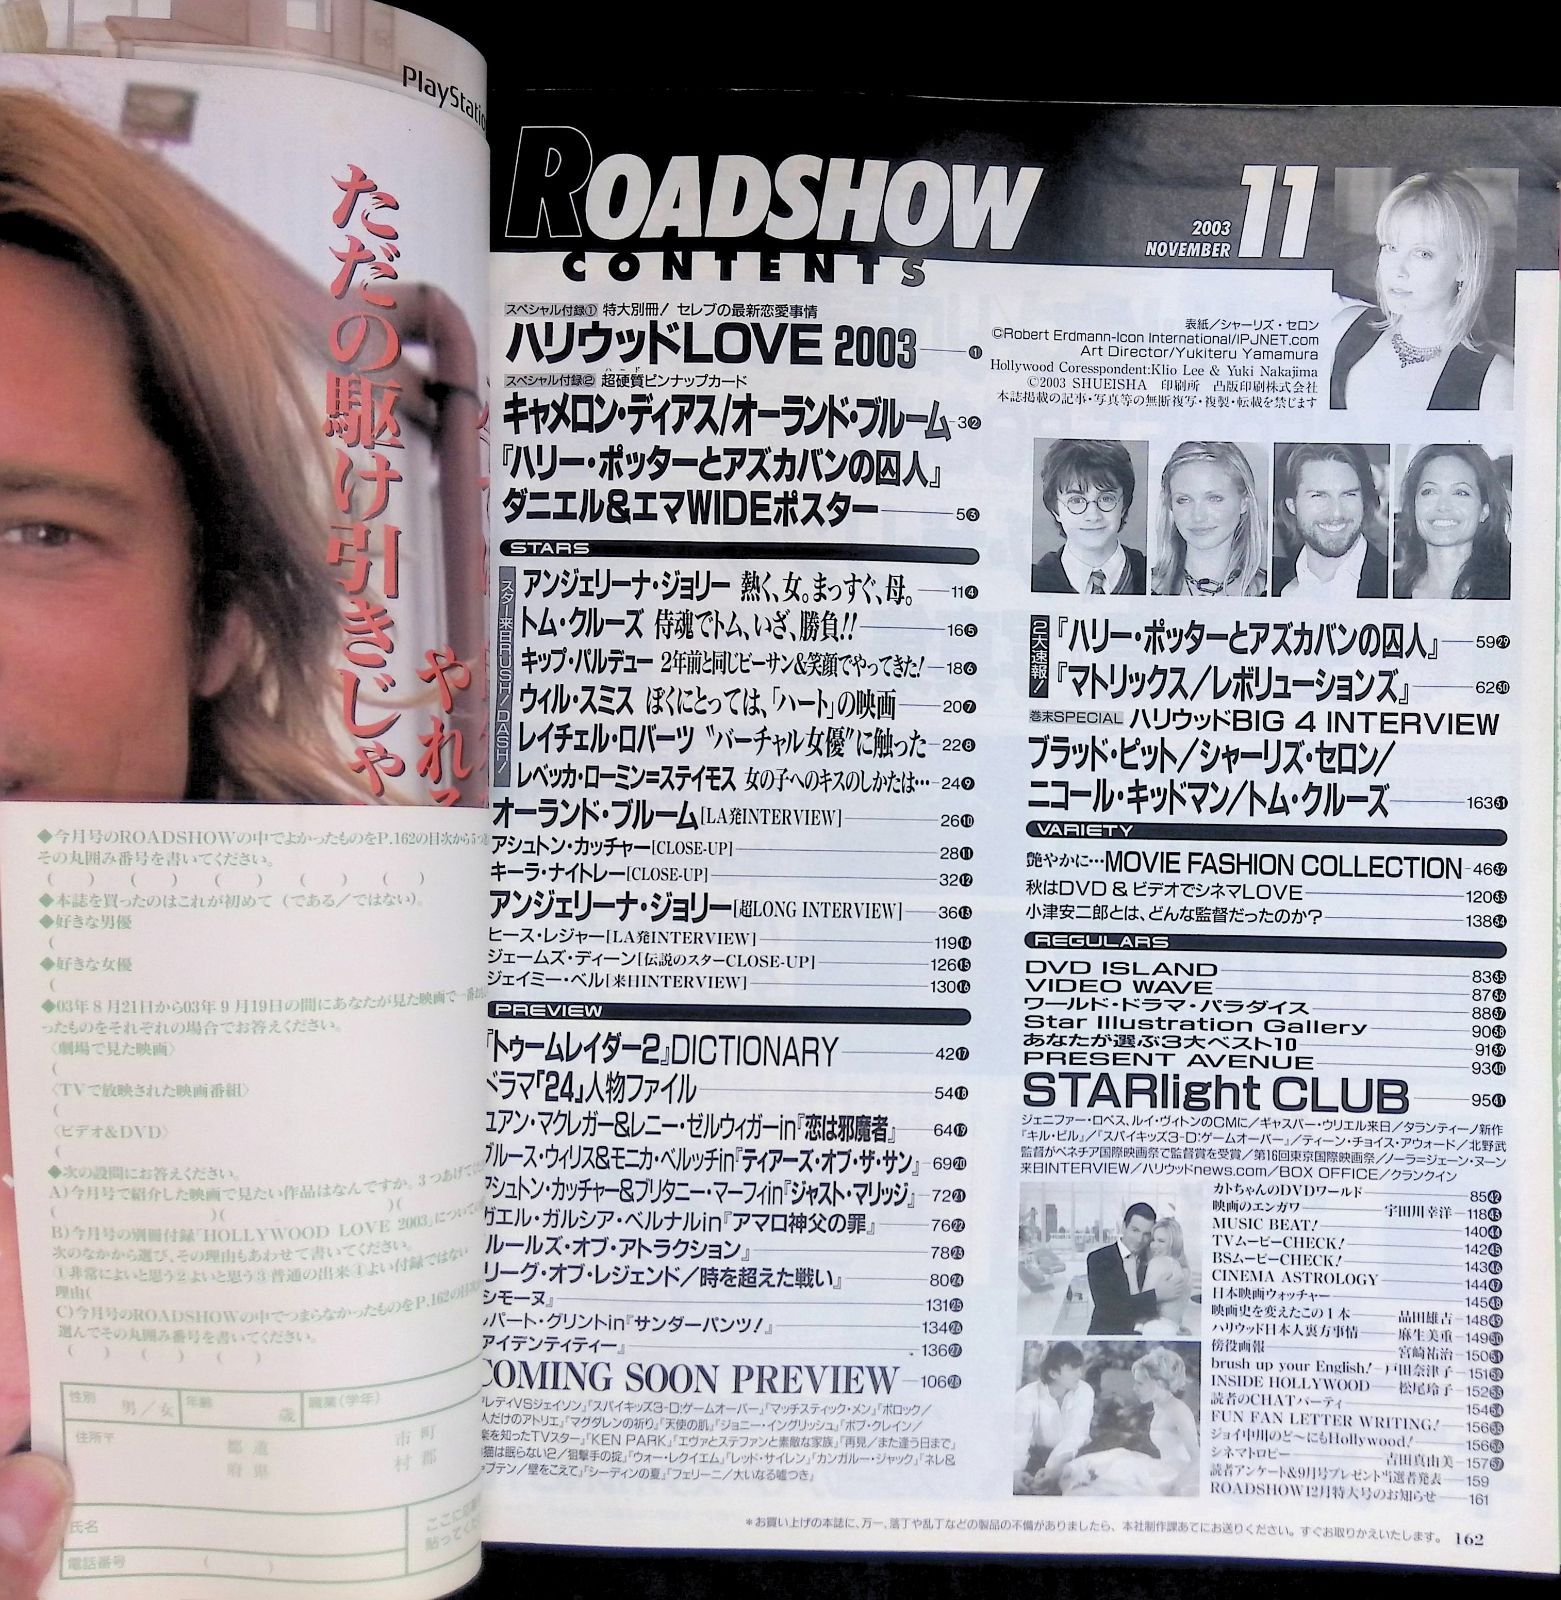 PlayStatio
ただの駆け引きじゃ
やれる
◆今月号のROADSHOWの中でよかったものをP.162の目次から5つ選
その丸囲み番号を書いてください。
( ) ( ) ( ) ( ) ( )
◆本誌を買ったのはこれが初めて (である/ではない)。
◆好きな男優
(
◆好きな女優
(
◆03年8月21日から03年9月19日の間にあなたが見た映画で一番よ
ったものをそれぞれの場合でお答えください。
〈劇場で見た映画〉
(
〈TVで放映された映画番組〉
(
〈ビデオ&DVD〉
(
◆次の設問にお答えください。
A)今月号で紹介した映画で見たい作品はなんですか。3つあげてくだ
( )( )(
B)今月号の別冊付録「HOLLYWOOD LOVE 2003」について
次のなかから選び、その理由もあわせて書いてください。
①非常によいと思う②よいと思う③普通の出来④よい付録ではない
理由(
C)今月号のROADSHOWの中でつまらなかったものをP.162の目次
選んでその丸囲み番号を書いてください。
( ) ( ) ( ) ( )
性別 男/女 年齢 歳 職業(学年)
住所〒 都道府県 市町村郡
氏名
電話番号 ( )
ここに応募
貼ってくだ
ROADSHOW
CONTENTS
2003
NOVEMBER
11
スペシャル付録① 特大別冊! セレブの最新恋愛事情
ハリウッドLOVE 2003 ①
スペシャル付録② 超硬質ピンナップカード
ハード
キャメロン・ディアス/オーランド・ブルーム 3②
『ハリー・ポッターとアズカバンの囚人』
ダニエル&エマWIDEポスター 5③
STARS
スター来日RUSH!DASH!
アンジェリーナ・ジョリー 熱く、女。まっすぐ、母。 11④
トム・クルーズ 侍魂でトム、いざ、勝負!! 16⑤
キップ・パルデュー 2年前と同じビーサン&笑顔でやってきた! 18⑥
ウィル・スミス ぼくにとっては、「ハート」の映画 20⑦
レイチェル・ロバーツ “バーチャル女優”に触った 22⑧
レベッカ・ローミン=ステイモス 女の子へのキスのしかたは… 24⑨
オーランド・ブルーム[LA発INTERVIEW] 26⑩
アシュトン・カッチャー[CLOSE-UP] 28⑪
キーラ・ナイトレー[CLOSE-UP] 32⑫
アンジェリーナ・ジョリー[超LONG INTERVIEW] 36⑬
ヒース・レジャー[LA発INTERVIEW] 119⑭
ジェームズ・ディーン[伝説のスターCLOSE-UP] 126⑮
ジェイミー・ベル[来日INTERVIEW] 130⑯
PREVIEW
『トゥームレイダー2』DICTIONARY 42⑰
ドラマ「24」人物ファイル 54⑱
ユアン・マクレガー&レニー・ゼルウィガーin『恋は邪魔者』 64⑲
ブルース・ウィリス&モニカ・ベルッチin『ティアーズ・オブ・ザ・サン』 69⑳
アシュトン・カッチャー&ブリタニー・マーフィin『ジャスト・マリッジ』 72㉑
ガエル・ガルシア・ベルナルin『アマロ神父の罪』 76㉒
『ルールズ・オブ・アトラクション』 78㉓
『リーグ・オブ・レジェンド/時を超えた戦い』 80㉔
『シモーヌ』 131㉕
ルパート・グリントin『サンダーパンツ!』 134㉖
『アイデンティティー』 136㉗
COMING SOON PREVIEW 106㉘
レディVSジェイソン」「スパイキッズ3-D:ゲームオーバー」「マッチスティック・メン」「ポロック/
人だけのアトリエ」「マグダレンの祈り」「天使の肌」「ジョニー・イングリッシュ」「ボブ・クレイン/
楽を知ったTVスター」「KEN PARK」「エヴァとステファンと素敵な家族」「再見/また逢う日まで」
猫は眠らない2/狙撃手の掟」「ウォー・レクイエム」「レッド・サイレン」「カンガルー・ジャック」「ネレ&
ャプテン/壁をこえて」「シーディンの夏」「フェリーニ/大いなる嘘つき」
表紙/シャーリズ・セロン
©Robert Erdmann-Icon International/IPJNET.com
Art Director/Yukiteru Yamamura
Hollywood Coresspondent:Klio Lee & Yuki Nakajima
©2003 SHUEISHA 印刷所 凸版印刷株式会社
本誌掲載の記事・写真等の無断複写・複製・転載を禁じます
2大速報!
『ハリー・ポッターとアズカバンの囚人』 59㉙
『マトリックス/レボリューションズ』 62㉚
巻末SPECIAL ハリウッドBIG 4 INTERVIEW
ブラッド・ピット/シャーリズ・セロン/
ニコール・キッドマン/トム・クルーズ 163㉛
VARIETY
艶やかに…MOVIE FASHION COLLECTION 46㉜
秋はDVD&ビデオでシネマLOVE 120㉝
小津安二郎とは、どんな監督だったのか? 138㉞
REGULARS
DVD ISLAND 83㉟
VIDEO WAVE 87㊱
ワールド・ドラマ・パラダイス 88㊲
Star Illustration Gallery 90㊳
あなたが選ぶ3大ベスト10 91㊴
PRESENT AVENUE 93㊵
STARlight CLUB 95㊶
ジェニファー・ロペス、ルイ・ヴィトンのCMに/ギャスパー・ウリエル来日/タランティーノ新作
『キル・ビル』/『スパイキッズ3-D:ゲームオーバー』/ティーン・チョイス・アウォード/北野武
監督がベネチア国際映画祭で監督賞を受賞/第16回東京国際映画祭/ノーラ=ジェーン・ヌーン
来日INTERVIEW/ハリウッドnews.com/BOX OFFICE/クランクイン
カトちゃんのDVDワールド 85㊷
映画のエンガワ 宇田川幸洋 118㊸
MUSIC BEAT! 140㊹
TVムービーCHECK! 142㊺
BSムービーCHECK! 143㊻
CINEMA ASTROLOGY 144㊼
日本映画ウォッチャー 145㊽
映画史を変えたこの1本 品田雄吉 148㊾
ハリウッド日本人裏方事情 麻生美重 149㊿
傍役画報 宮崎祐治 150
brush up your English! 戸田奈津子 151
INSIDE HOLLYWOOD 松尾玲子 152
読者のCHATパーティ 154
FUN FAN LETTER WRITING! 156
ジョイ中川のど〜にもHollywood! 156
シネマトロピー 吉田真由美 157
読者アンケート&9月号プレゼント当選者発表 159
ROADSHOW12月特大号のお知らせ 161
*お買い上げの本誌に、万一、落丁や乱丁などの製品の不備がありましたら、本社制作課あてにお送りください。すぐお取りかえいたします。 162